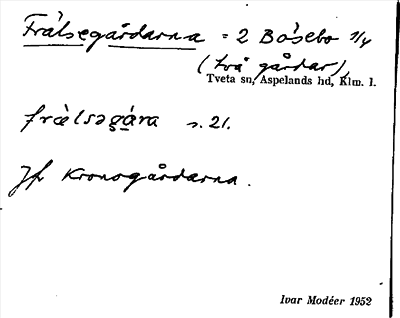 Frälsegårdarna = 2 Båsebo 3/4
(två gårdar),
Tveta sn, Aspelands hd, Klm. l.
frälsəgåra s. 21.
Jfr Kronogårdarna.
Ivar Modéer 1952